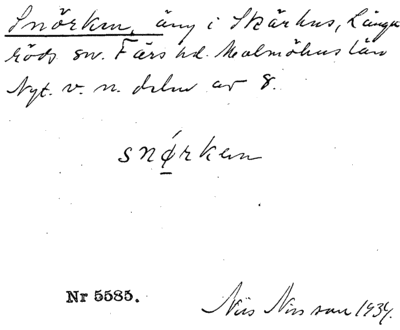 Snörken, äng i Skärhus, Långa
röds sn. Färs hd. Malmöhus län
Nyt. v. n. delen av 8.
snǿrken
Nr 5585.
Nils Nilsson 1934.